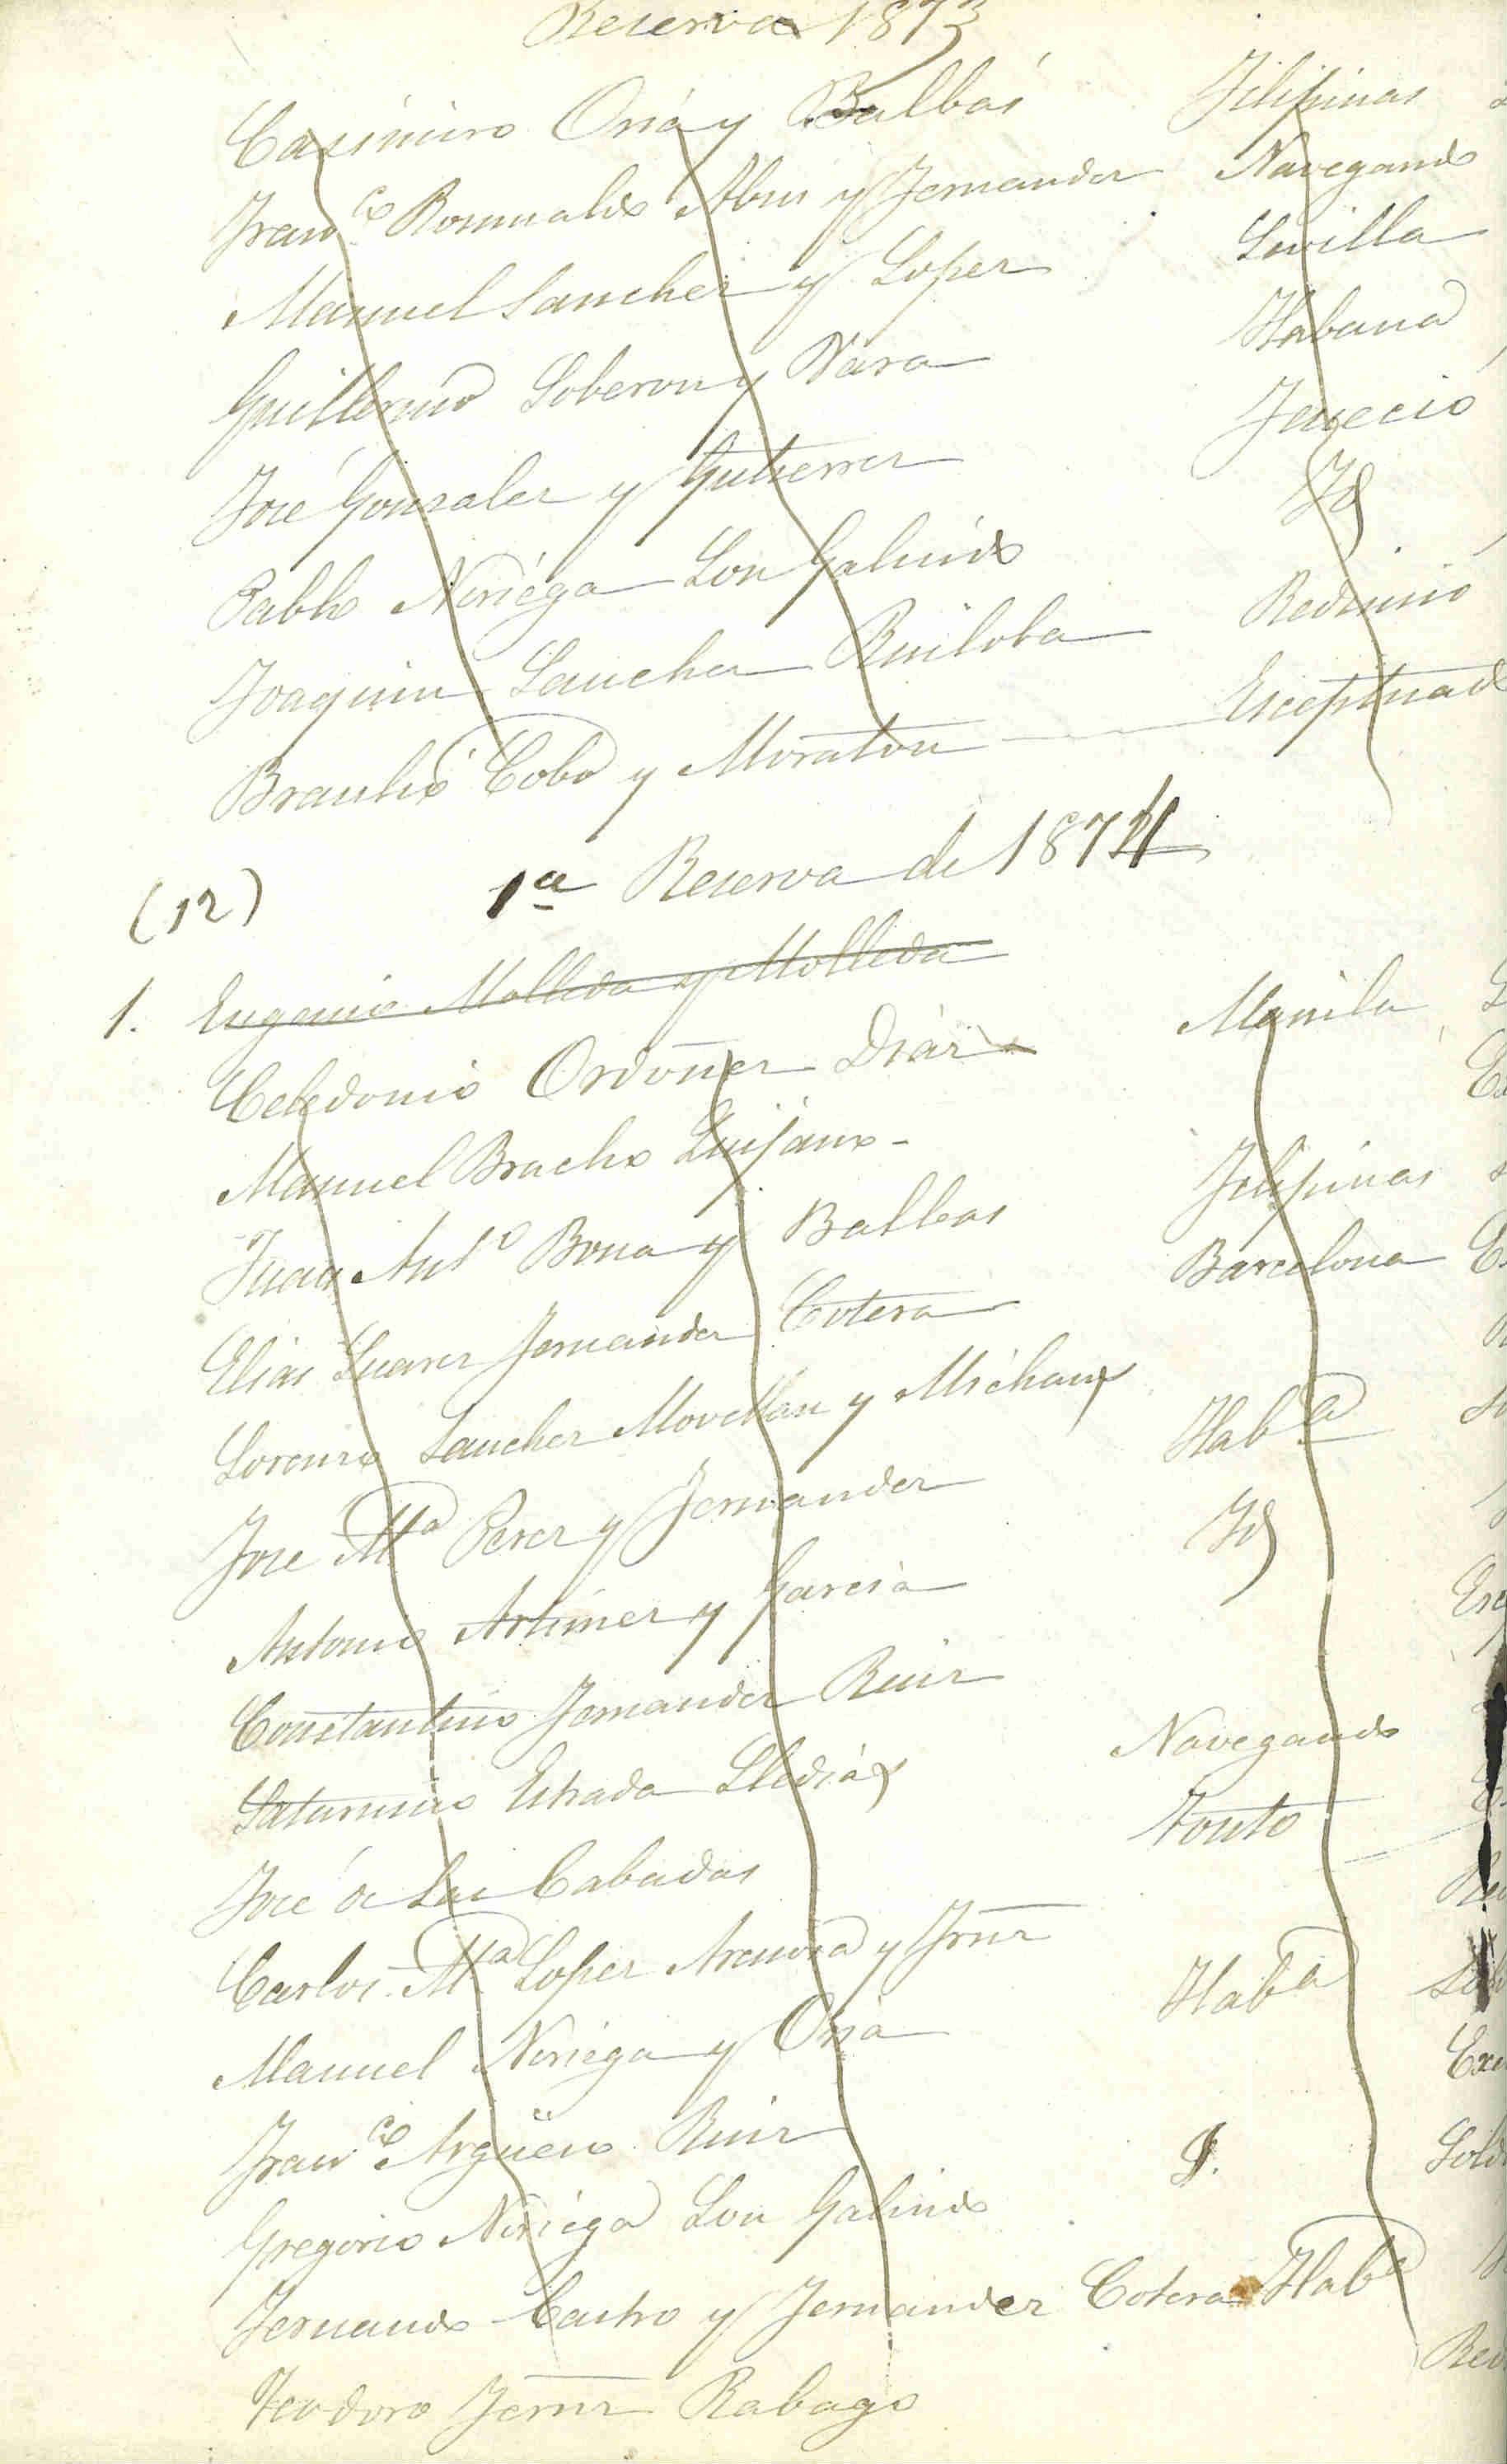 Reserva 1873
Casimiro Oria y Balbás Filipinas
Fran.co Romualdo Abin y Fernandez Navegando
Manuel Sanchez y Lopez Sevilla
Guillermo Soberon y Vara Habana
José Gonzalez y Gutierrez Fenecio
Pablo Noriega Son Galindo Yd
Joaquin Sanchez Ruiloba Redimio
Braulio Cobo y Moraton Esceptuad
(12) 1a Reserva de 1874
1. Eugenio Molleda y Molleda
Celedonio Ordoñez Diáz Manila
Manuel Bracho Quijano -
Juan Anto Bona y Balbas Filipinas
Elias Suarez Fernandez Cotera Barcelona
Lorenzo Sanchez Movellan y Michaux
Jose Ma Perez y Fernandez Haba
Antonio Artimez y García Yd
Constantino Fernandez Ruiz
Saturnino Estrada Navegando
José de las Cabadas Tonto
Carlos Ma Lopez y Frnz
Manuel Noriega y Oria Haba
Fran.co Argüeso Ruiz
Gregorio Noriega Son Galindo
Fernando Castro y Fernandez Cotera Haba
Teodoro Fernz Rabago